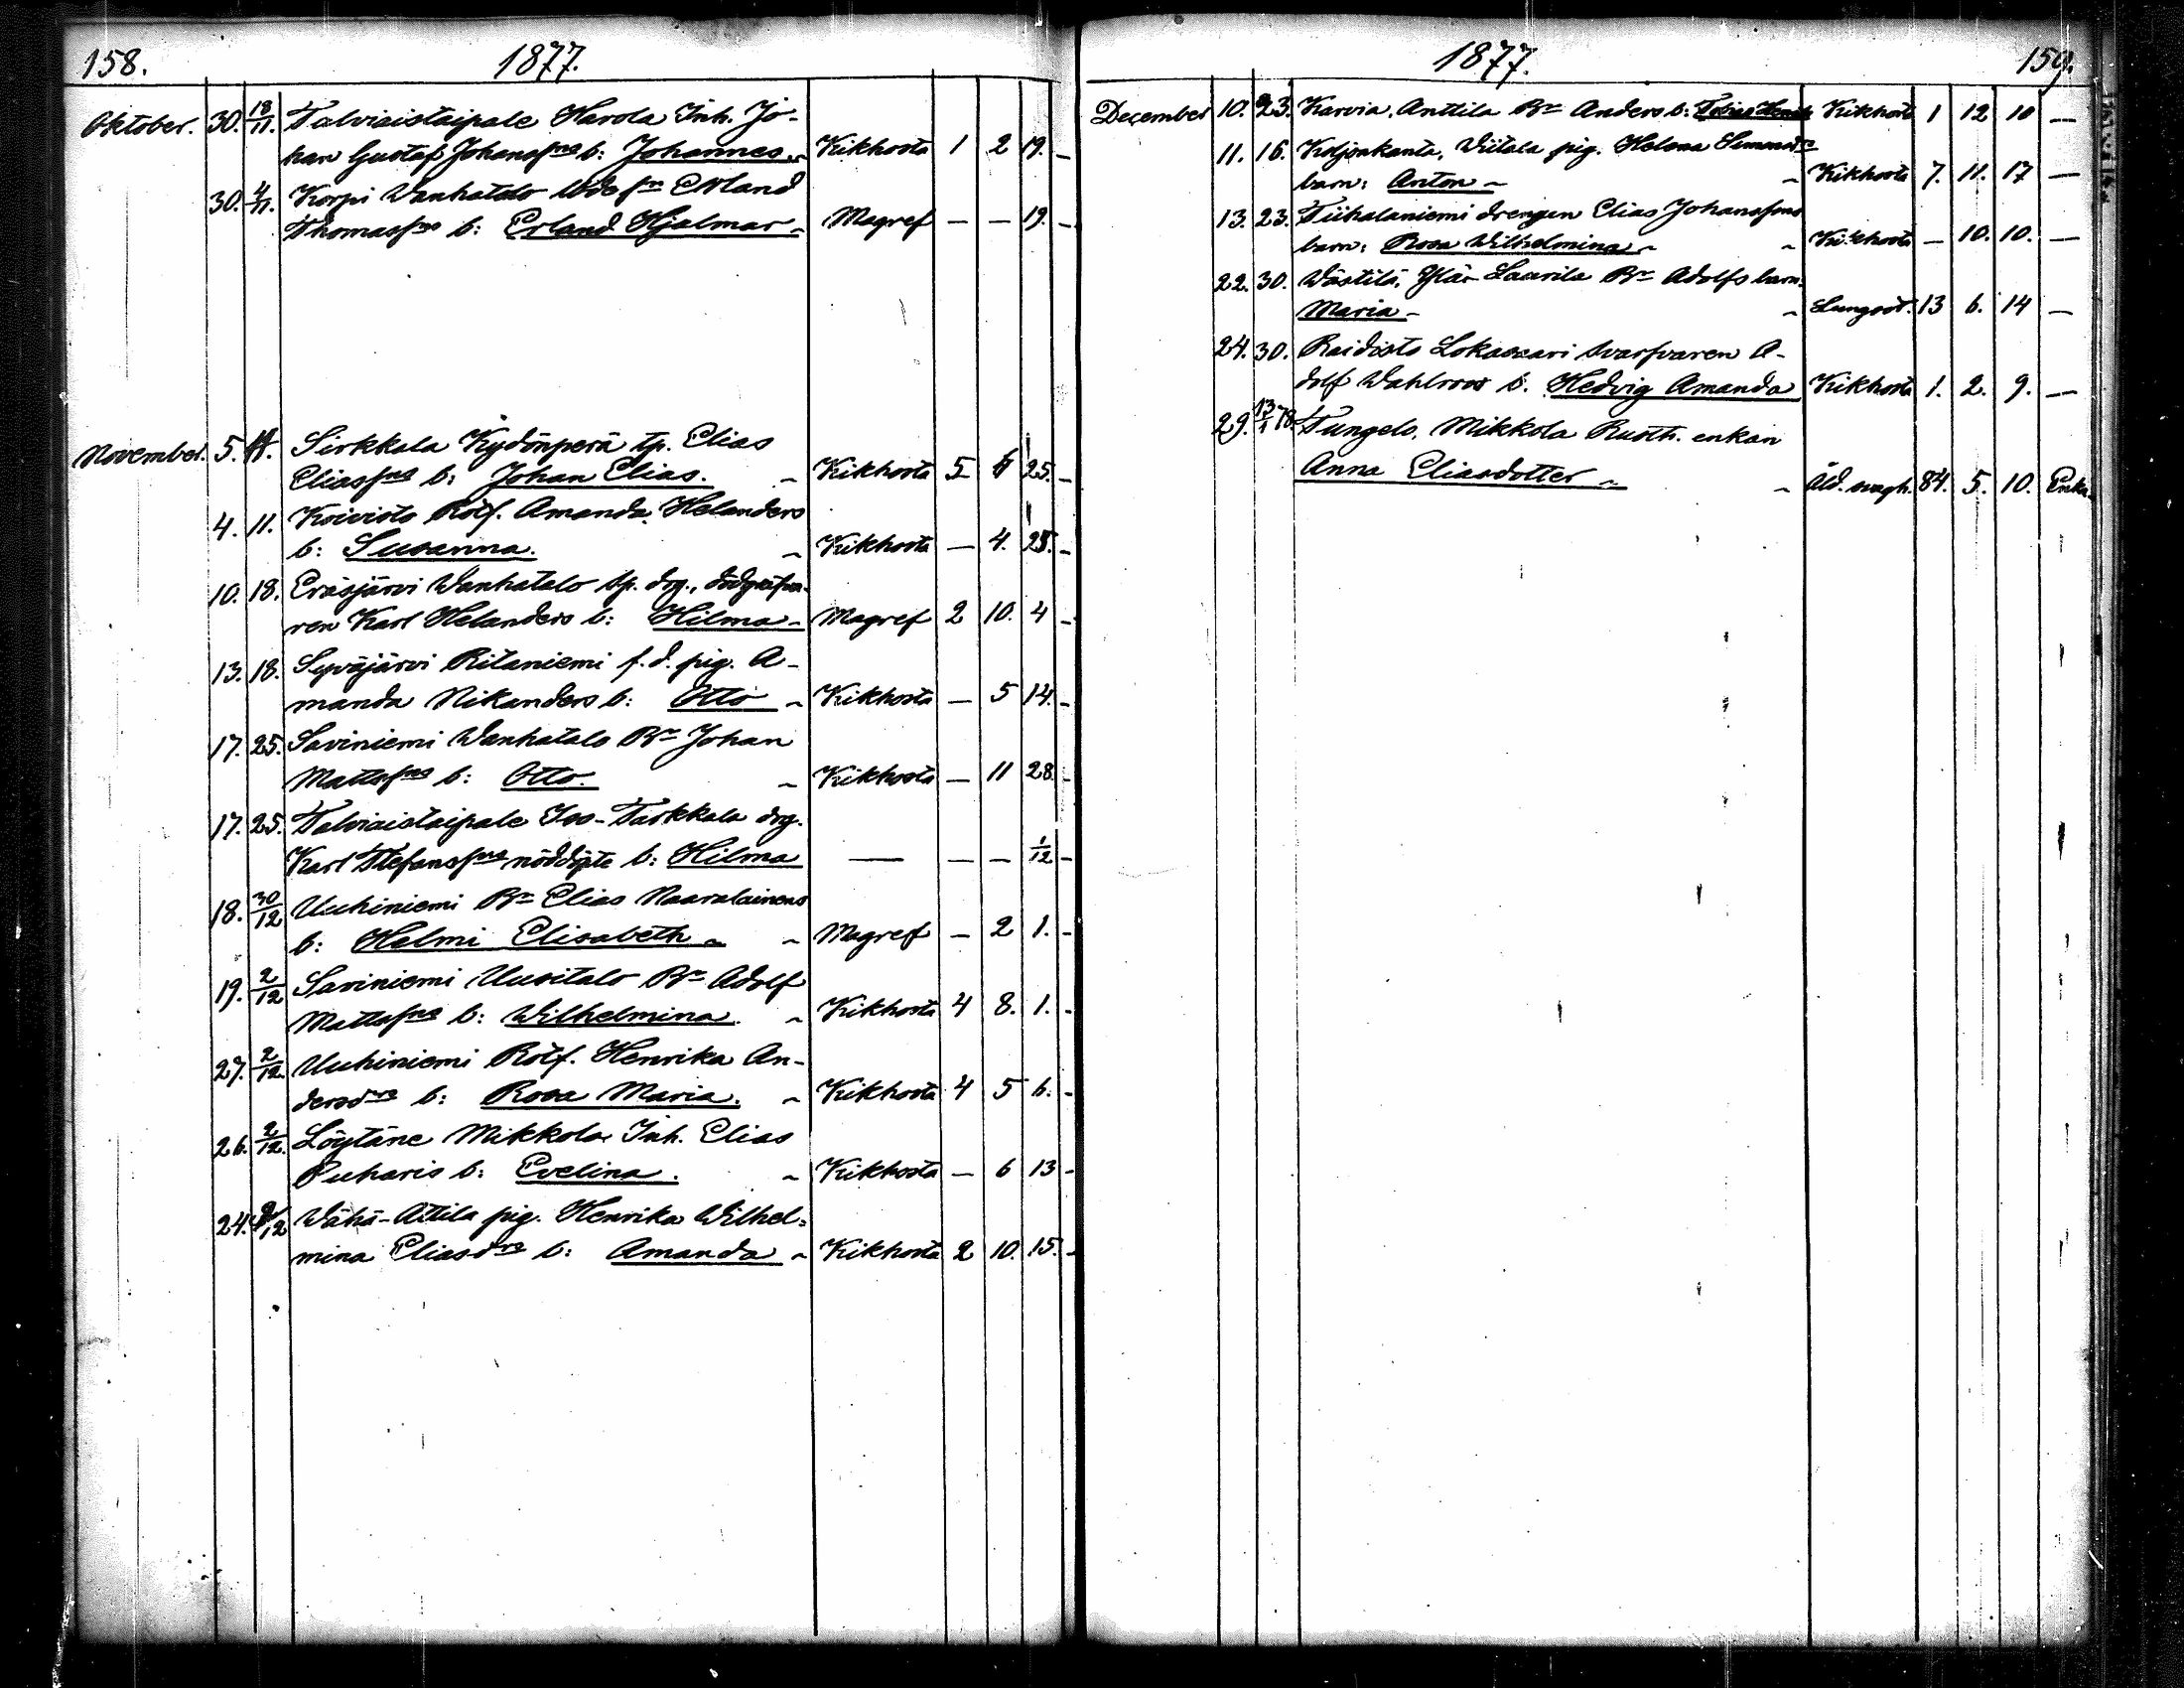 158. 1877.
Oktober. 30. 18/11. Talviaistaipale Harola Inh. Jo-
han Gustaf Johanssns b: Johannes. Kikhosta 1 2 19. -
30. 4/11. Korpi Wanhatalo Erland
Thomassns b: Erland Hjalmar - Magref - - 19. -
November. 5. 11. Sirkkala Kydönperä tp. Elias
Eliassns b: Johan Elias. - Kikhosta 5 25. -
4. 11. Koivisto Rotf. Amanda Helanders
b: Susanna. - Kikhosta - 4. 28. -
10. 18. Eräsjärvi Wanhatalo tp. drg., dödgräfva-
ren Karl Helanders b: Hilma - Magref 2 10. 4 -
13. 18. Syväjärvi Ritaniemi f.d. pig. A-
manda Nikanders b: Otto - Kikhosta - 5 14. -
17. 25. Saviniemi Wanhatalo Bn Johan
Mattssns b: Otto. - Kikhosta - 11 28. -
17. 25. Talviaistaipale Iso-Tarkkala drg.
Karl Stefanssns nöddöpte b: Hilma — - - 1/12 -
18. 30/12 Uuhiniemi Bn Elias Naaralainens
b: Helmi Elisabeth - - Magref - 2 1. -
19. 2/12 Saviniemi Uusitalo Bn Adolf
Mattssns b: Wilhelmina. - Kikhosta 4 8. 1. -
27. 2/12. Uuhiniemi Rotf. Henrika An-
dersdrs b: Rosa Maria. - Kikhosta 4 5 6. -
26. 2/12. Löytäne Mikkola Inh. Elias
Puharis b: Evelina. - Kikhosta - 6 13 -
24. 2/12 Wähä-Attila pig. Henrika Wilhel=
mina Eliasdrs b: Amanda - Kikhosta 2 10. 15. -
1877. 159.
December 10. 23. Karvia, Anttila Bn Anders b: Kikhosta 1 12 10 —
11. 16. Koljonkanta, Wiitala pig. Helena Simonsdrs
barn: Anton - - Kikhosta 7. 11. 17 —
13. 23. Tiihalaniemi drengen Elias Johanssons
barn: Rosa Wilhelmina - - Kikhosta - 10. 10. —
22. 30. Wästilä, Ylä-Laurila Bn Adolfs barn
Maria - - Lungsot. 13 6. 14 —
24. 30. Raidisto Lokasaari Svarfvaren A-
dolf Wahlroos b. Hedvig Amanda Kikhosta 1. 2. 9. —
29. 13/1 78. Tungelo, Mikkola Rusth. enkan
Anna Eliasdotter - - Åld. svagh. 84. 5. 10. Enka.